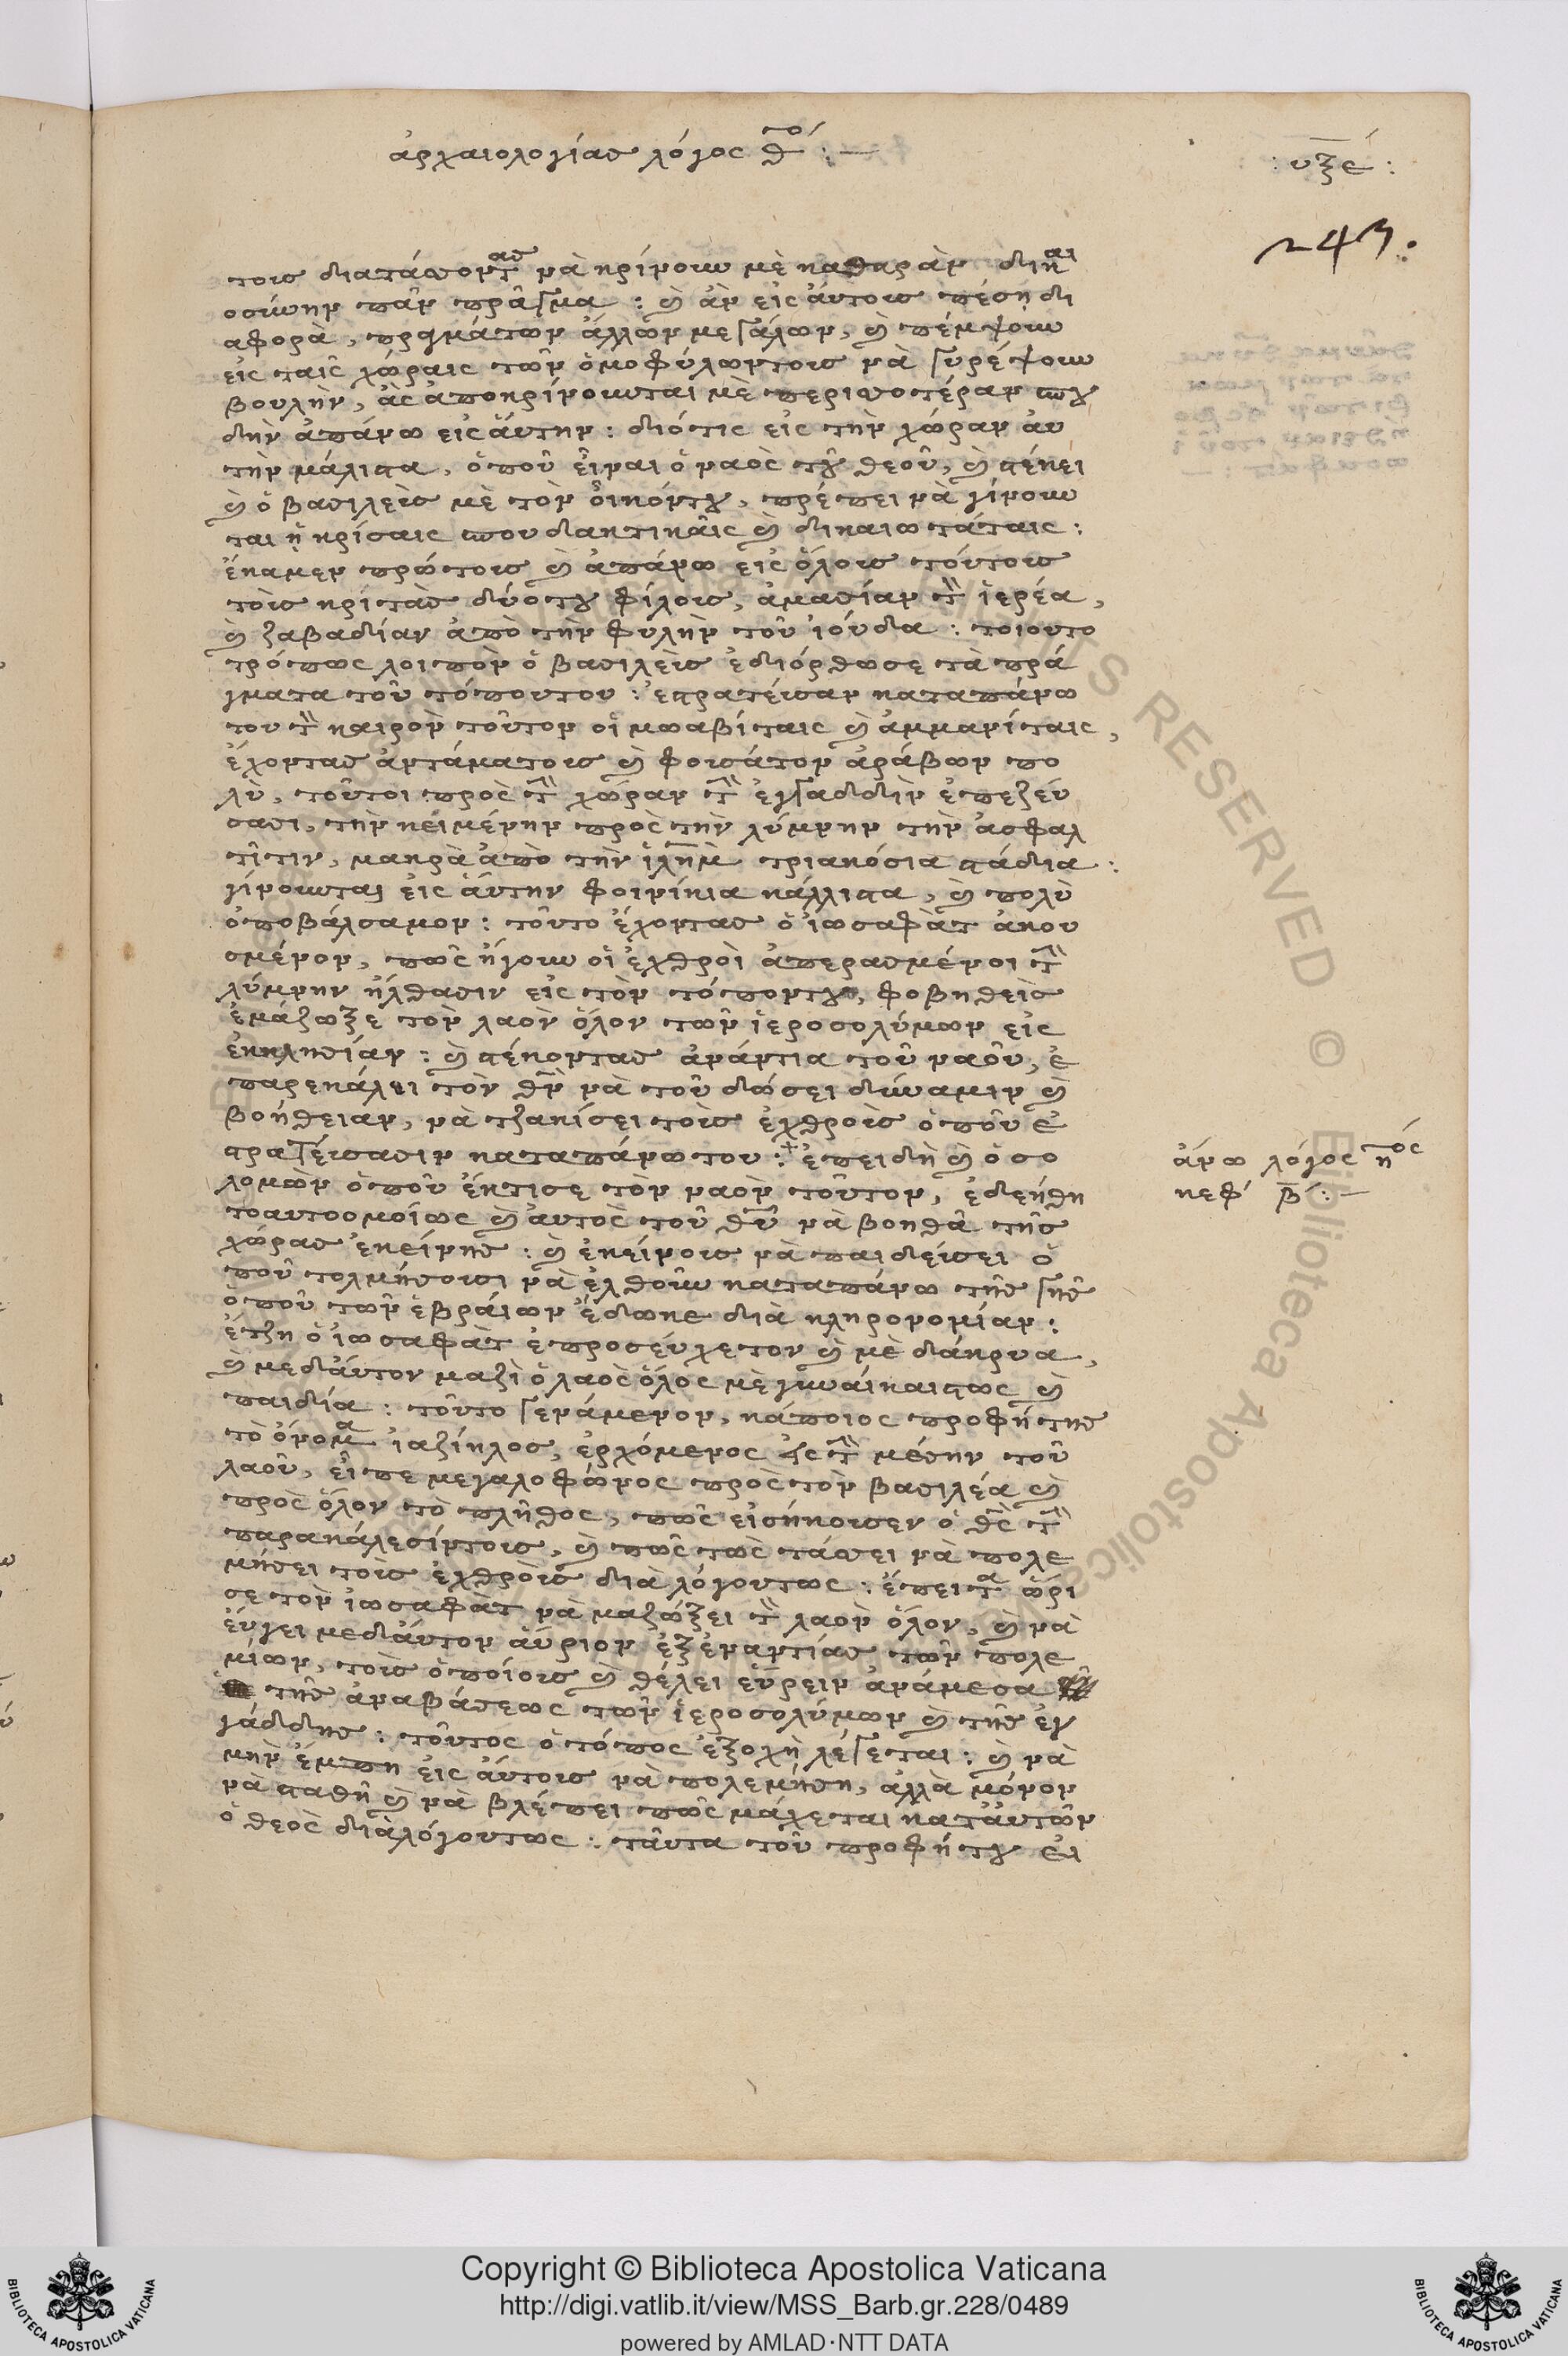 ἀρχαιολογίας λόγος θ^ος :—
: υξέ :
243.
τοις διατάσοντας νὰ κρίνουν μὲ καθαρὰν δικαι
οσύνην πᾶν πρᾶγμα : καὶ ἂν εἰς ἄυτοις πέση δι
αφορὰ, πραγμάτων ἄλλων μεγάλων, καὶ πέμψουν
εἰς ταῖς χώραις τῶν ὁμοφύλωντοις νὰ γυρέψουν
βουλὴν, ἂς ἀποκρίνουνται μὲ περισοτέραν σπου
δὴν ἀπάνω εἰς ἄυτην : διότις εἰς τὴν χώραν ἀυ
τὴν μάλιστα, ὁποῦ εἶναι ὁ ναὸς τοῦ θεοῦ, καὶ στέκει
καὶ ὁ βασιλεὺς μὲ τὸν ὀικόντου, πρέπει νὰ γίνουν
ται ᾑ κρίσαις σπουδακτικᾶις καὶ δικαιωτάταις :
ἔκαμεν πρώτοις καὶ ἀπάνω εἰς ὅλοις τόυτοις
τοὶς κριτὰς δύοτου φίλοις, ἀμασίαν τὸν ἱερέα,
καὶ ζαβαδίαν ἀπὸ τὴν φυλὴν τοῦ ἰόυδα : τοιουτο
τρόπως λοιπὸν ὁ βασιλεὺς ἐδιόρθωσε τὰ πρά
γματα τοῦ τόπουτου : ἐστρατέυσαν καταπάνω
του τὸν καιρὸν τοῦτον οἱ μωαβίταις καὶ ἀμμανίταις,
ἔχοντας ἀντάματοις καὶ φουσάτον ἀράβων πο
λὺ, τοῦτοι πρὸς τὴν χώραν τὴν ἐγγαδδὶν ἐπεζέυ
σασι, τὴν κειμένην πρὸς τὴν λύμνην τὴν ἀσφαλ
τῖτιν, μακρὰ ἀπὸ τὴν ἱλημ̀ τριακόσια στάδια :
γίνουνται εἰς ἄυτην φοινίκια κάλλιστα, καὶ πολὺ
ὀποβάλσαμον : τοῦτο ἔχοντας ὁ ἰωσαφὰτ ἀκου
σμένον, πῶς ἤγουν οἱ ἐχθροὶ ἀπερασμένοι τὴν
λύμνην ἤλθασιν εἰς τὸν τόποντου, φοβηθεὶς
ἐμάζωξε τὸν λαὸν ὅλον τῶν ἱεροσολύμων εἰς
ἐκκλησίαν : καὶ στέκοντας ἀνάντια τοῦ ναοῦ, ἐ
παρεκάλει τὸν θν̀ νὰ τοῦ δώσει δύναμιν καὶ
βοήθειαν, νὰ τζακίσει τοὶς ἐχθροὶς ὁποῦ ἐ
στρατέυσασιν καταπάνω του :⁺ ἐπειδὴ καὶ ὁ σο
λομὼν ὁποῦ ἔκτισε τὸν ναὸν τοῦτον, ἐδεήθη
τοαυτοομοίως καὶ ἀυτὸς τοῦ θῦ νὰ βοηθᾶ τῆς
χώρας ἐκείνης : καὶ ἐκείνοις νὰ παιδεύσει ὁ
ποῦ τολμήσουσι νὰ ἐλθοῦν καταπάνω τῆς γῆς
ὁποῦ τῶν ἑβράιων ἔδωκε διὰ κληρονομίαν :
ἔτζη ὁ ἰωσαφὰτ ἐπροσέυχετον καὶ μὲ δάκρυα,
καὶ μεδἄυτον μαζὶ ὁ λαὸς ὅλος μὲ γυνάικαιςτως καὶ
παιδία : τοῦτο γενάμενον, κάποιος προφήτης
τὸ ὄνομα ἰαζίηλος, ἐρχόμενος εἰς τὴν μέσην τοῦ
λαοῦ, εἶπε μεγαλοφώνος πρὸς τὸν βασιλέα καὶ
πρὸς ὅλον τὸ πλῆθος, πῶς εἰσήκουσεν ὁ θς̀ τὴν
παρακάλεσίντοις, καὶ πῶς τὼς τάσει νὰ πολε
μήσει τοὶς ἐχθροὶς διὰ λόγουτως : ἔπειτα ὥρι
σε τὸν ἰωσαφὰτ νὰ μαζώξει τὸν λαὸν ὅλον, καὶ νὰ
ἔυγει μεδἄυτον ἄυριον ἐξεναντίας τῶν πολε
μίων, τοὶς ὁποίοις καὶ θέλει ἕυρειν ἀνάμεσα
τῆς ἀναβάσεως τῶν ἱεροσολύμων καὶ τῆς ἐγ
γάδδης : τοῦτος ὁ τόπος ἐξοχὴ λέγεται : καὶ νὰ
μὴν ἔμπη εἰς ἄυτοις νὰ πολεμήση, ἀλλὰ μόνον
νὰ σταθῆ καὶ νὰ βλέπει πῶς μάχεται κατἀυτῶν
ὁ θεὸς διαλόγουτως : ταῦτα τοῦ προφήτου ἐι
ἄνω λόγος η^ος
κεφ́ β̄ :—
Copyright © Biblioteca Apostolica Vaticana
http://digi.vatlib.it/view/MSS_Barb.gr.228/0489
powered by AMLAD·NTT DATA